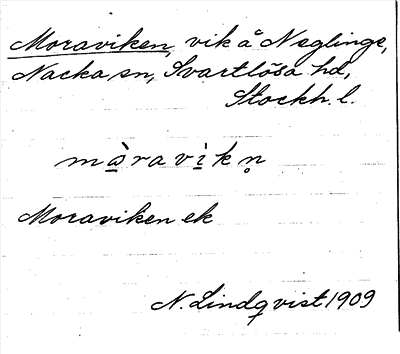 Moraviken, vik å Neglinge,
Nacka sn, Svartlösa hd,
Stockh. l.
mòravìkn̥
Moraviken ek
N. Lindqvist 1909